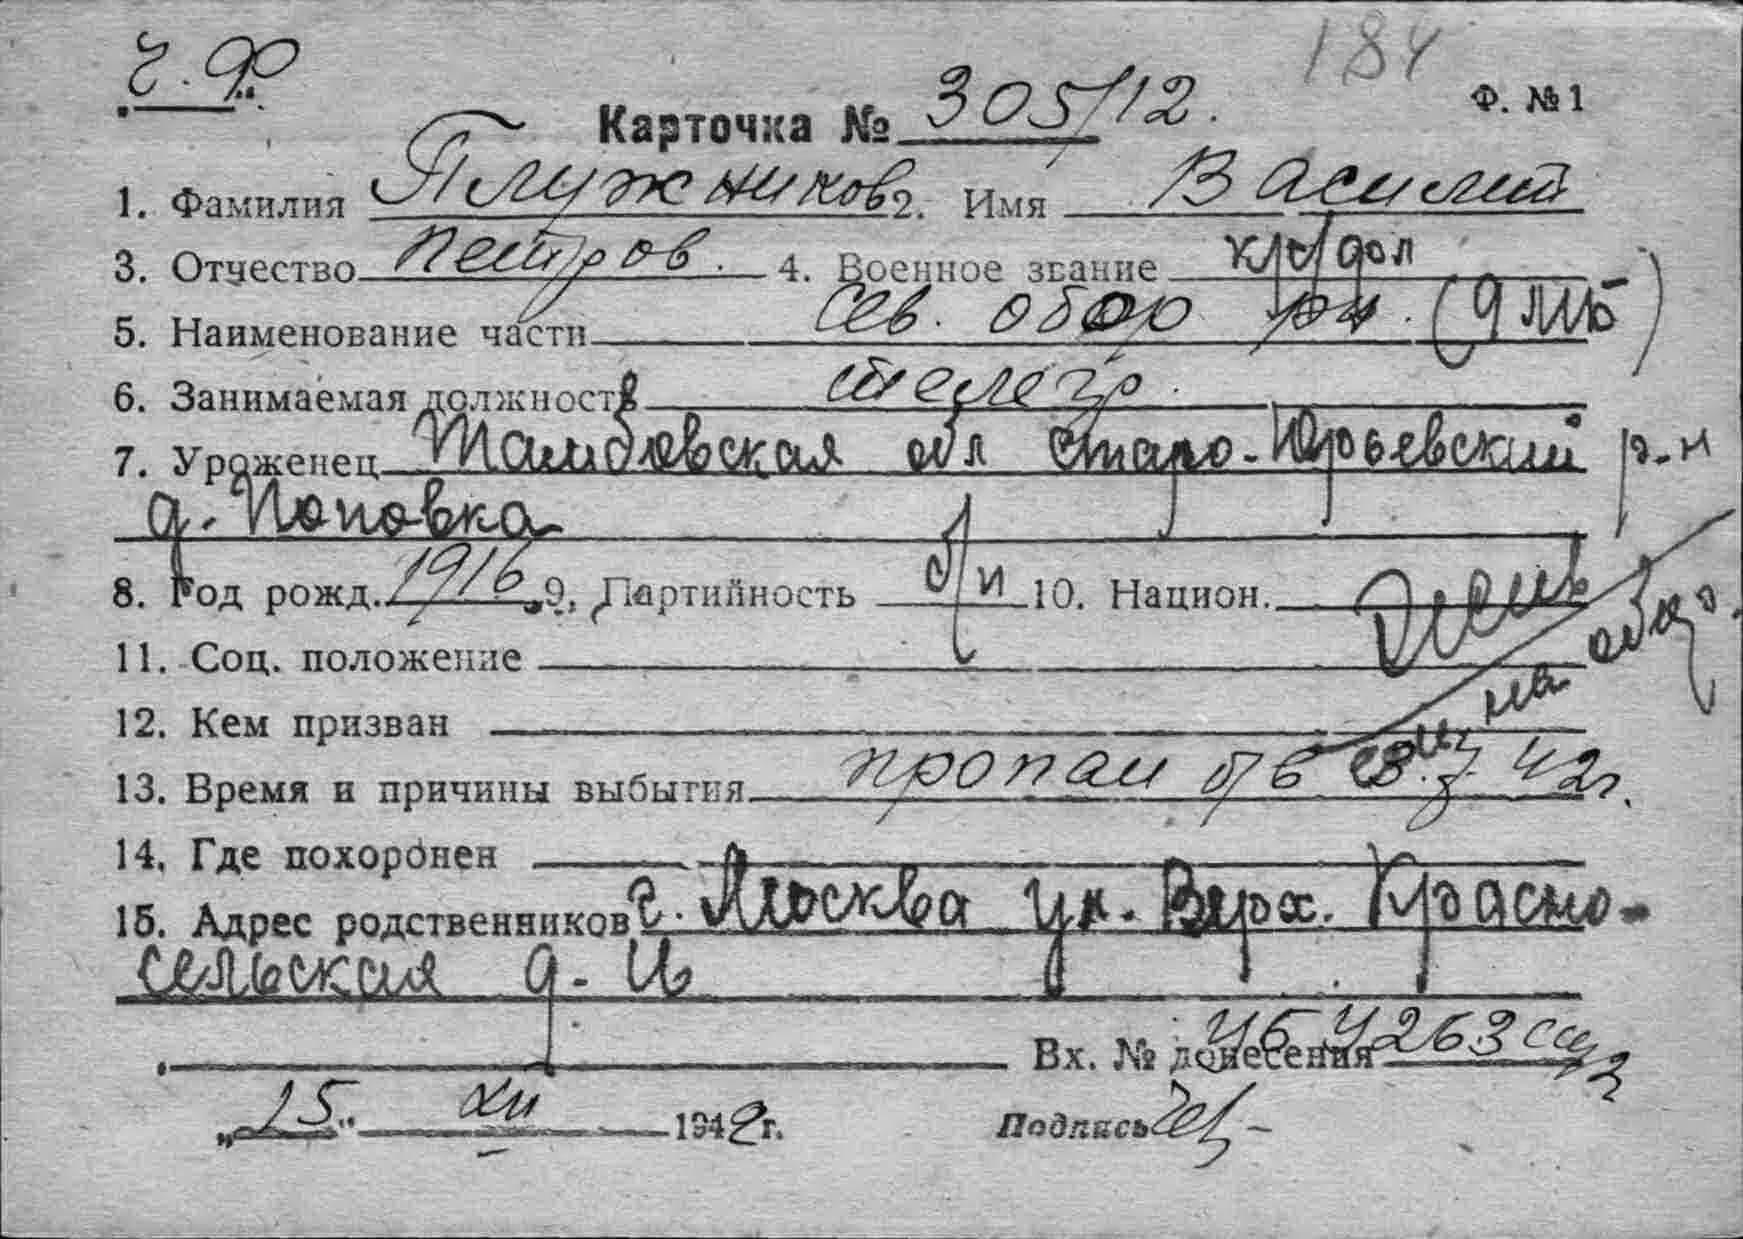 184
Ч. Ф.
Карточка № 305/12. Ф. № 1
1. Фамилия Плужников 2. Имя Василий
3. Отчество Петров. 4. Военное звание кр/дол
5. Наименование части Сев. обор рн. (9 ЛИБ)
6. Занимаемая должность телегр.
7. Уроженец Тамбовская обл Старо-Юрьевский р-н
д. Поповка
8. Год рожд. 1916 9. Партийность б/п 10. Национ.
11. Соц. положение
12. Кем призван
на общ.
13. Время и причины выбытия пропал б/в 3.7.42г.
14. Где похоронен
15. Адрес родственников г. Москва ул. Верх. Красно-
сельская д. 16
Вх. № донесения 4263
„15" XII 1942г. Подпись